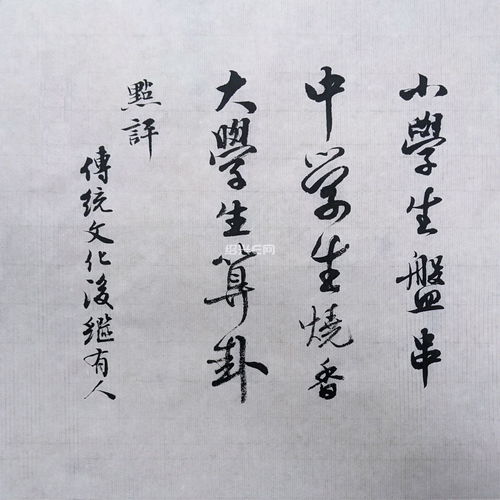 小學生盤串
中学生燒香
大學生算卦
點評
傳統文化後繼有人